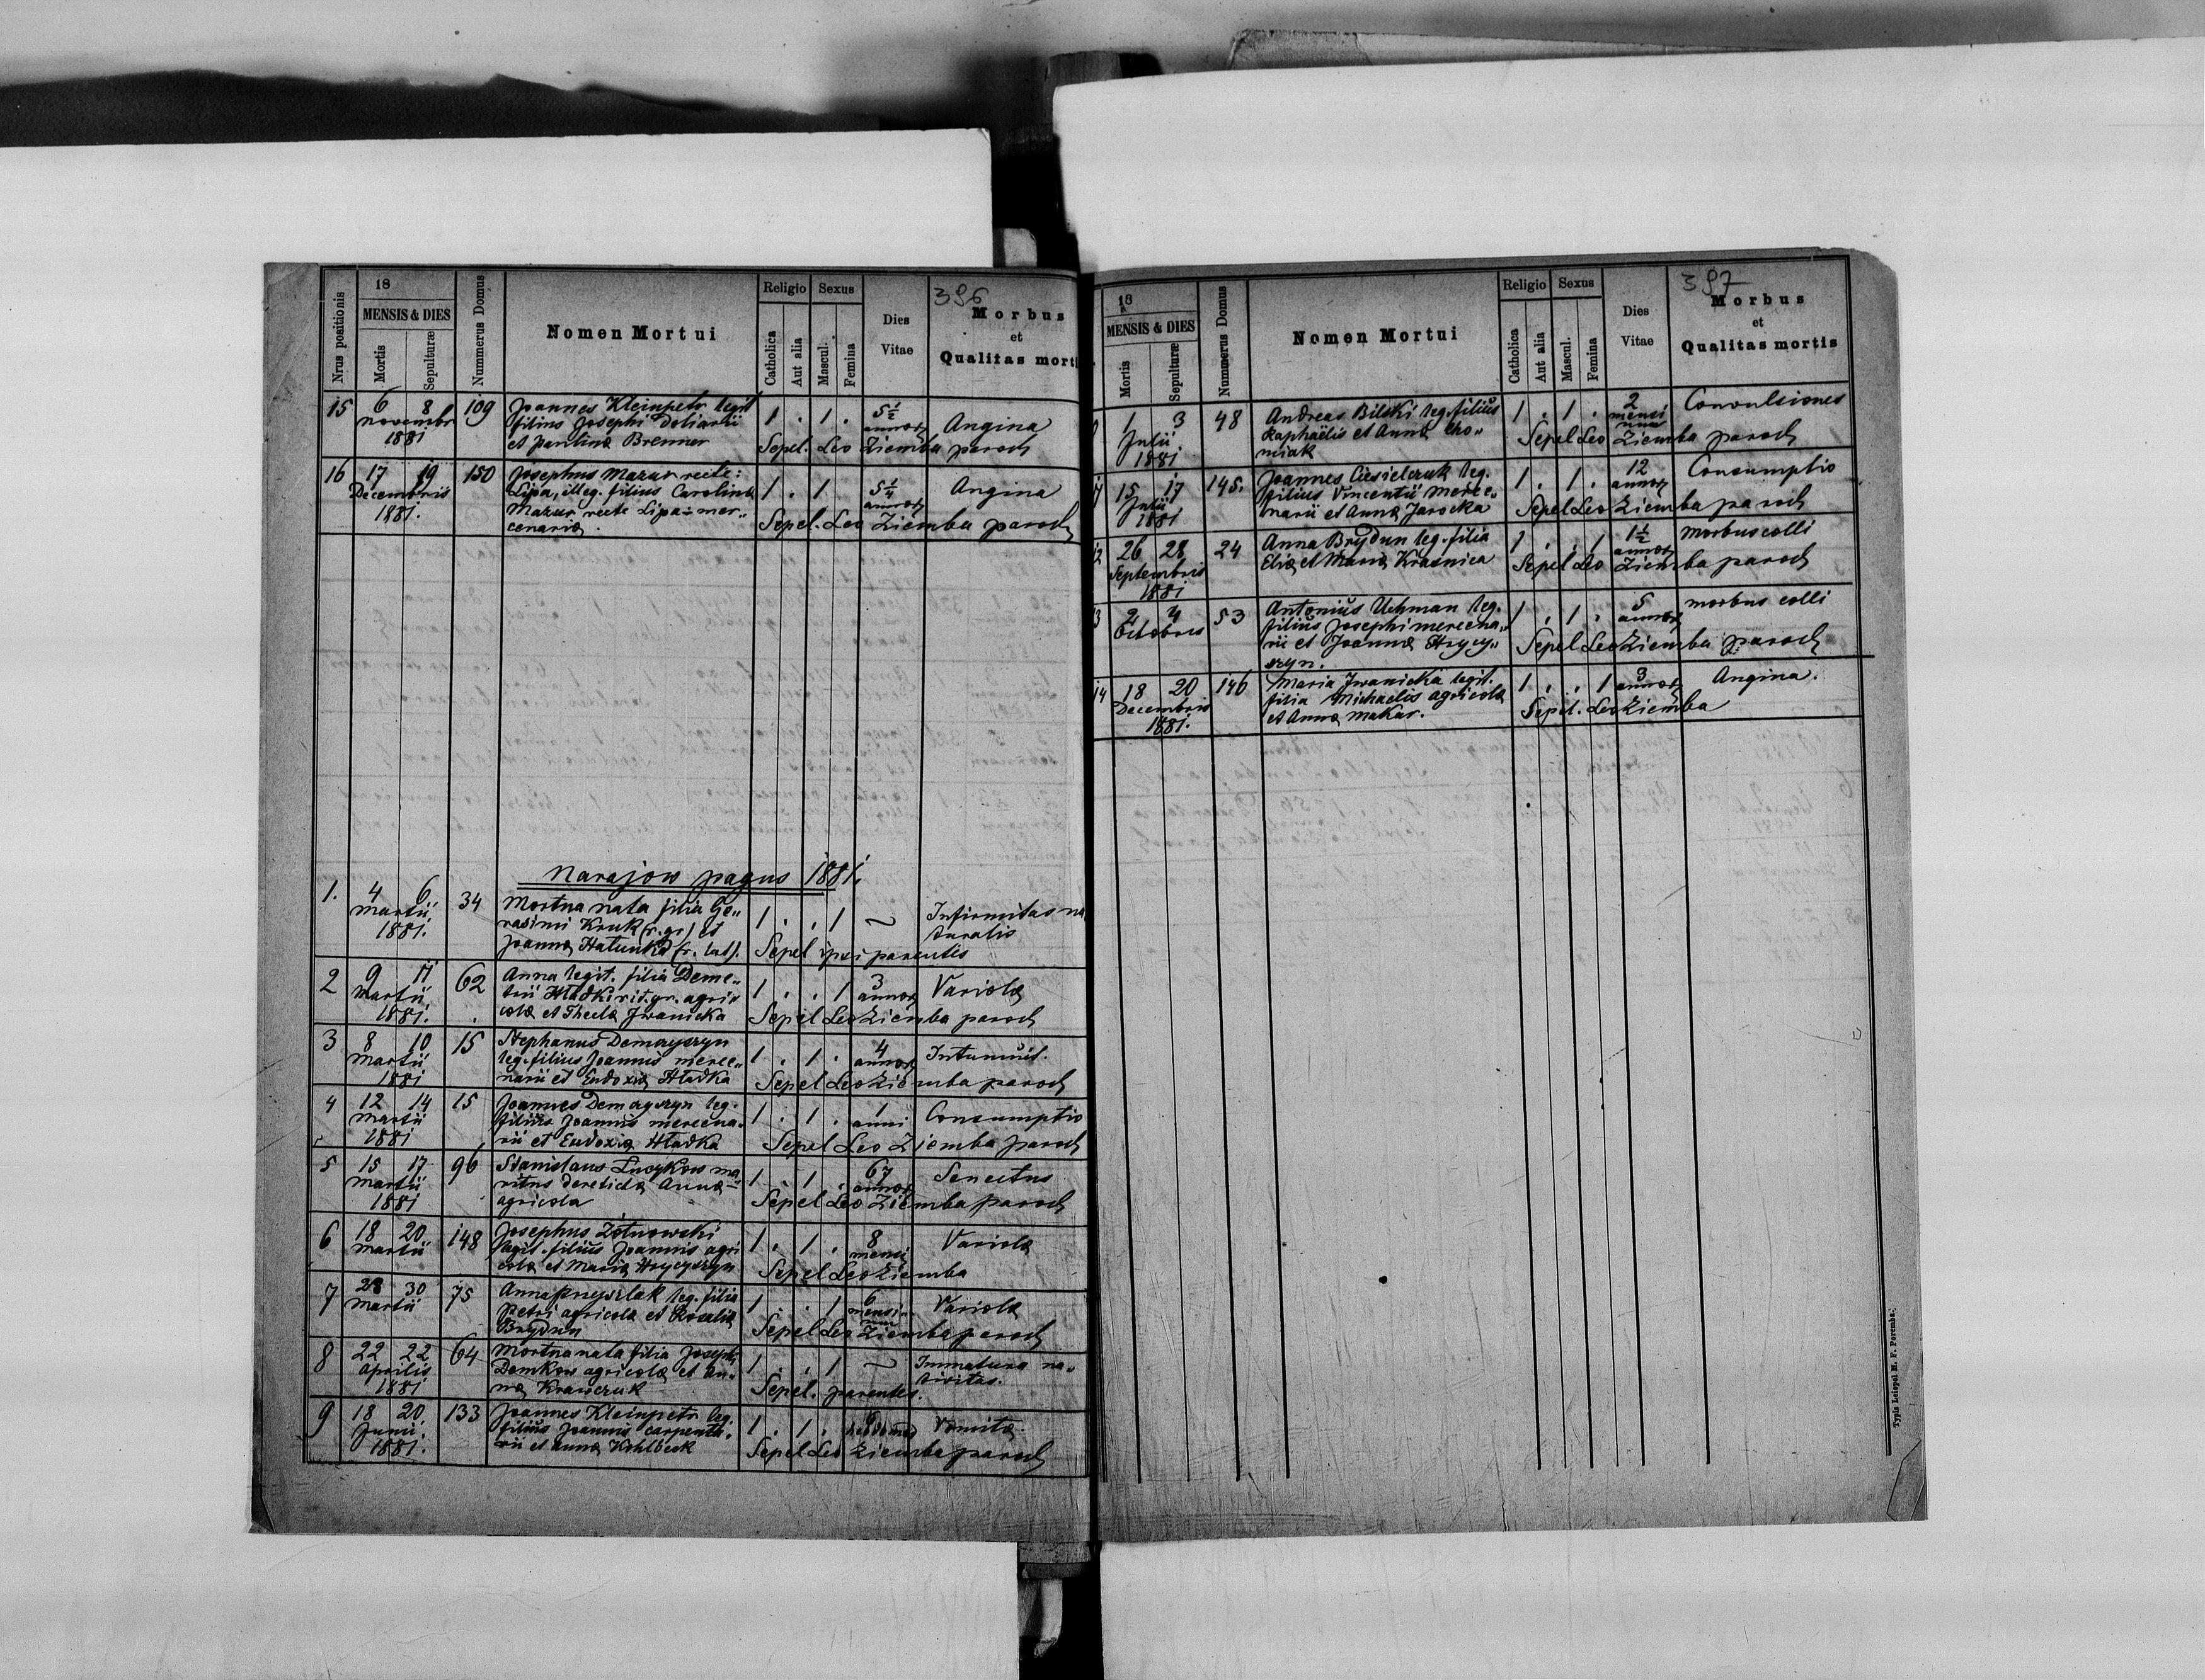 396
Nrus positionis
18
MENSIS & DIES
Mortis
Sepulturæ
Nummerus Domus
Nomen Mortui
Religio
Catholica
Aut alia
Sexus
Mascul.
Femina
Dies
Vitae
Morbus
et
Qualitas morti
15 6 8 109 Joannes Kleinpetr legit 1 . 1 . 5½
novembr filius Josephi Doliarii annor Angina
1881 et Paulina Brenner Sepel. Leo Ziemba paroch
16 17 19 150 Josephus Mazur recte: 5¼ Angina
Decembris Lipa, illeg. filius Carolina 1 . 1 annor
1881. Mazur recte Lipa mer„ Sepel. Leo Ziemba paroch
cenaria.
Narajow pagus 1881.
1. 4 6 34 Mortua nata filia Ge„ 1 . . 1 ~ Infirmitas na
Martii rasimi Kruk (r. gr) et turalis
1881. Joanna Hatunka (r. lat). Sepel ipsi parentis
2 9 11 62 Anna legit. filia Deme„ 3
Martii trii Hładki rit. gr. agri„ 1 . . 1 annor Variola
1881. cola et Thecla Jwanicka Sepel Leo Ziemba paroch
3 8 10 15 Stephanus Demczyszyn 4
Martii leg. filius Joannis merce„ 1 . 1 . annor Intumuit.
1881 narii et Eudoxia Hładka Sepel Leo Ziemba paroch
4 12 14 15 Joannes Demczyszyn leg. 1 . 1 . 1 Consumptio
Martii filius Joannis mercena„ anni
1881 rii et Eudoxia Hładka Sepel Leo Ziemba paroch
5 15 17 96 Stanislaus Łuczkow ma 67 Senectus
Martii ritus derelicta Anna 1 . 1 . annor
1881 agricola Sepel Leo Ziemba paroch
6 18 20 148 Josephus Żołnowski 8 Variola
Martii legit. filius Joannis agri 1 . 1 . mensi
cola et Maria Hrycyszyn Sepel Leo Ziemba
7 28 30 75 Anna leg. filia 6 Variola
Martii Petri agricola et Rosalia 1 . . 1 mensi„
Brydun num Sepel Leo Ziemba paroch
8 22 22 64 Mortua nata filia Josephi 1 . . 1 ~ Immatura na„
Aprilis Demkow agricola et An„ tivitas.
1881 na Krawczuk Sepel. parentes.
9 18 20 133 Joannes Kleinpetr leg. 1 . 1 . Vomita
Junii filius Joannis carpenta„
1881. rii et Anna Kohlbeck Sepel Leo Ziemba paroch
397
18
MENSIS & DIES
Mortis
Sepulturæ
Nummerus Domus
Nomen Mortui
Religio
Catholica
Aut alia
Sexus
Mascul.
Femina
Dies
Vitae
Morbus
et
Qualitas mortis
1 3 48 Andreas Bilski leg. filius 1 . 1 . 2 Convulsiones
Julii Raphaëlis et Anna Cho„ mensi
1881 miak num Sepel Leo Ziemba paroch
15 17 145. Joannes Ciesielczuk leg. 1 . 1 . 12 Consumptio
Julii filius Vincentii merce„ annor
1881 narii et Anna Jarocka Sepel Leo Ziemba paroch
12 26 28 24 Anna Brydun leg. filia 1 . . 1 1½ Morbus colli
Septembris Elia et Maria Krasnica annor
1881 Sepel Leo Ziemba paroch
13 2 4 53 Antonius Uchman leg. 1 . 1 . 5 morbus colli
Octobris filius Josephi mercena„ annor
rii et Joanna Hrycy„ Sepel Leo Ziemba paroch
szyn.
14 18 20 146 Maria Jwanicka legit. 1 . . 1 3 Angina.
Decembris filia Michaelis agricola annor
1881. et Anna Makar. Sepel. Leo Ziemba
Typis Leiopol M. F. Poremba.